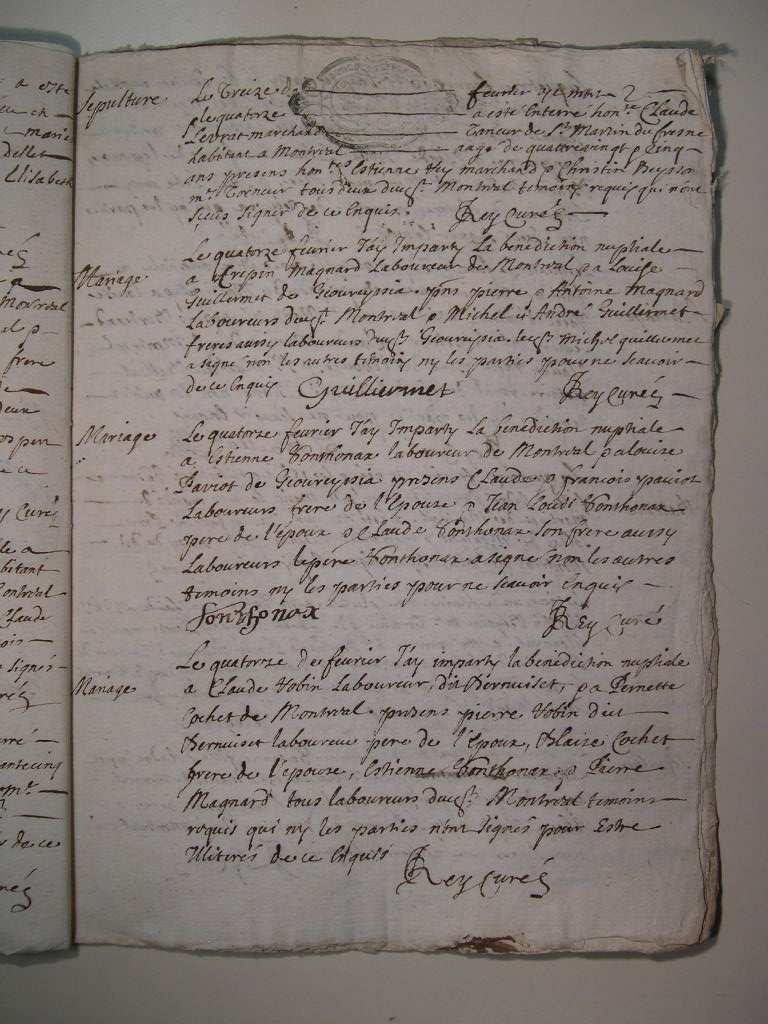 Sepulture
Le Treize de fevrier est mort &
le quatorze a esté enterré hon.ble Claude
Levrat marchand Taneur de St Martin du Fresne
habitant a Montreal aagé de quattrevingt & cinq
ans presens hon.bles Estienne Rey marchand & Christin Beysson
m.re Torneur tous deux dud. Montreal temoins requis qui n'ont
sceus signer de ce Enquis. Rey Curé
Mariage
Le quatorze fevrier J'ay Imparty La benediction nuptiale
a Crepin Magnard Laboureur de Montreal & a Louise
Guillermet de Geovreyssia. pns pierre & Antoine Magnard
Laboureurs dud. Montreal & Michel et André Guillermet
freres aussy laboureurs dud. Geovreyssia. led. Michel guillermet
a signé non les autres temoins ny les parties pour ne scavoir
de ce Enquis Guilliermet Rey Curé
Mariage
Le quatorze fevrier J'ay Imparty La benediction nuptiale
a Estienne Tonthonax laboureur de Montreal & a Louise
Paviot de Geovreyssia presens Claude & francois paviot
Laboureurs frere de l'Epouze & Jean Louis Tonthonax
pere de l'epoux & Claude Tonthonax son frere aussy
Laboureurs le pere Tonthonax a signé non les autres
temoins ny les parties pour ne scavoir Enquis
Fonthonax Rey Curé
Mariage
Le quatorze de fevrier J'ay imparty la benediction nuptiale
a Claude Jobin Laboureur, dit Bernuiset, & a Pernette
Cochet de Montreal. presens pierre Jobin dict
Bernuiset laboureur pere de l'Epoux, Blaise Cochet
frere de l'epouze, Estienne Tonthonax & Pierre
Magnard tous laboureurs dud. Montreal temoins
requis qui ny les parties n'ont signés pour Estre
Illiterés de ce Enquis
Rey Curé